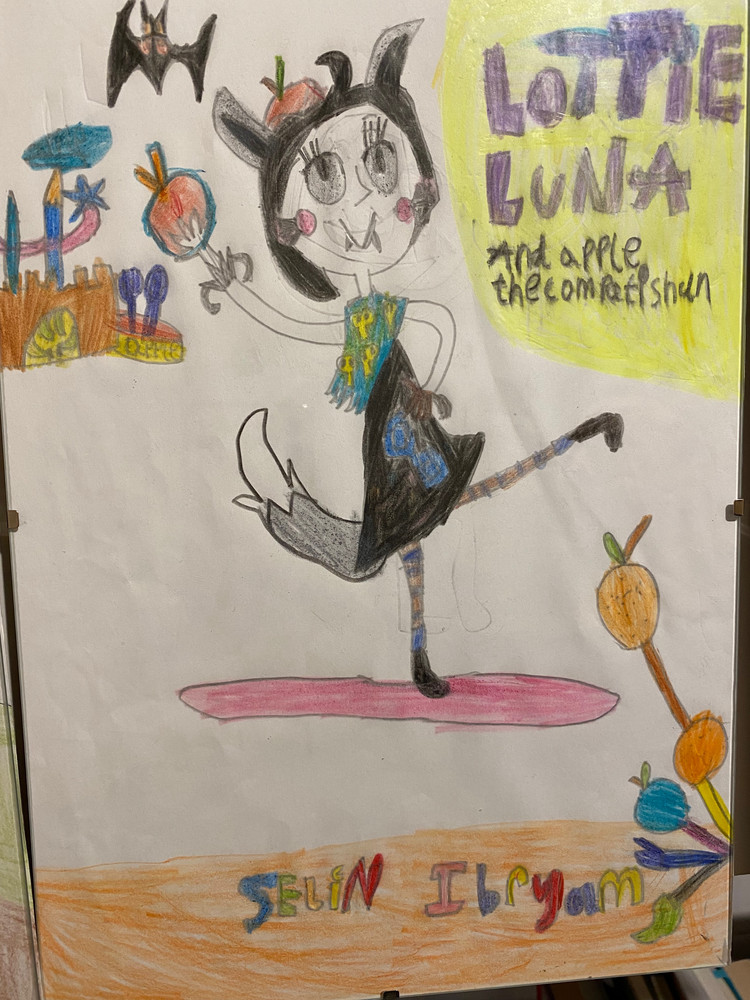 LOTTIE
LUNA
And apple
the compatishun
SELIN Ibryam